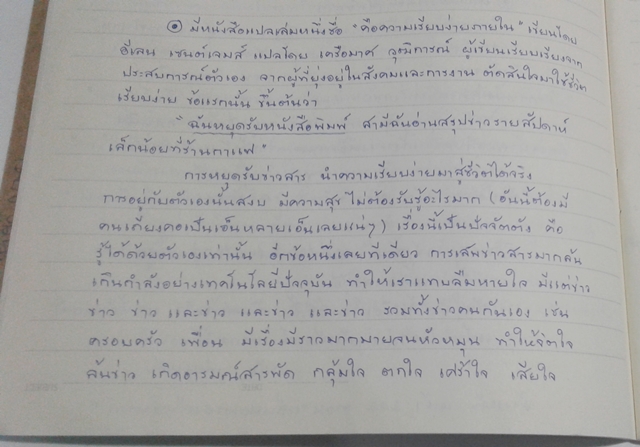 ๏ มีหนังสือแปลเล่มหนึ่งชื่อ "คือความเรียบง่ายภายใน" เขียนโดย
อีเลน เซนต์เจมส์ แปลโดย เครือมาศ วุฒิการณ์ ผู้เขียนเรียบเรียงจาก
ประสบการณ์ตัวเอง จากผู้ที่ยุ่งอยู่ในสังคมและการงาน ตัดสินใจมาใช้ชีวิต
เรียบง่าย ข้อแรกนั้น ขึ้นต้นว่า
"ฉันหยุดรับหนังสือพิมพ์ สามีฉันอ่านสรุปข่าวรายสัปดาห์
เล็กน้อยที่ร้านกาแฟ"
การหยุดรับข่าวสาร นำความเรียบง่ายมาสู่ชีวิตได้จริง
การอยู่กับตัวเองนั้นสงบ มีความสุข ไม่ต้องรับรู้อะไรมาก (อันนี้ต้องมี
คนเถียงคอเป็นเอ็นหลายเอ็นเลยแน่ๆ) เรื่องนี้เป็นปัจจัตตัง คือ
รู้ได้ด้วยตัวเองเท่านั้น อีกข้อหนึ่งเลยทีเดียว การเสพข่าวสารมากล้น
เกินกำลังอย่างเทคโนโลยีปัจจุบัน ทำให้เราแทบลืมหายใจ มีแต่ข่าว
ข่าว ข่าว และข่าว และข่าว และข่าว รวมทั้งข่าวคนกันเอง เช่น
ครอบครัว เพื่อน มีเรื่องมีราวมากมายจนหัวหมุน ทำให้จิตใจ
ล้นข่าว เกิดอารมณ์สารพัด กลุ้มใจ ตกใจ เศร้าใจ เสียใจ